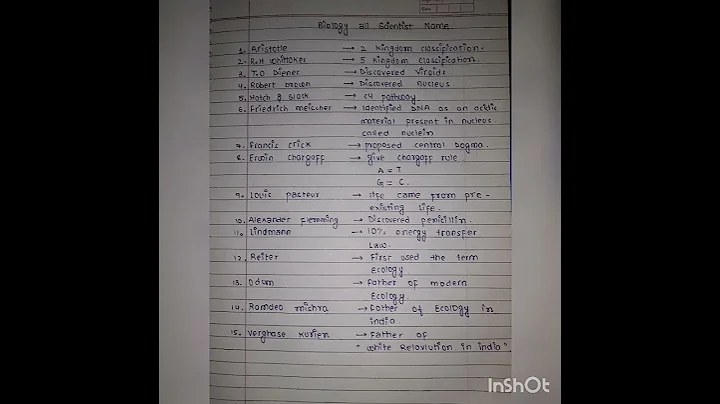 Date
Biology all Scientist Name
1. Aristotle → 2 Kingdom classification.
2. R.H Whittaker → 5 Kingdom classification.
3. T.O Diener → Discovered Viroids.
4. Robert brown → Discovered nucleus.
5. Hatch & Slack → C4 pathway
6. Friedrich meischer → identified DNA as an acidic
material present in nucleus
called nuclein
7. Francis crick → proposed central Dogma.
8. Erwin chargaff → give chargaff rule
A = T
G = C.
9. Louis pasteur → life came from pre-
existing life.
10. Alexander flemming → Discovered penicillin.
11. Lindmann → 10% energy transfer
Law.
12. Reiter → First used the term
Ecology
13. Odum → Father of modern
Ecology.
14. Ramdeo mishra → Father of Ecology in
india.
15. Verghase kurien → Father of
"white Relovlution in india".
InShOt